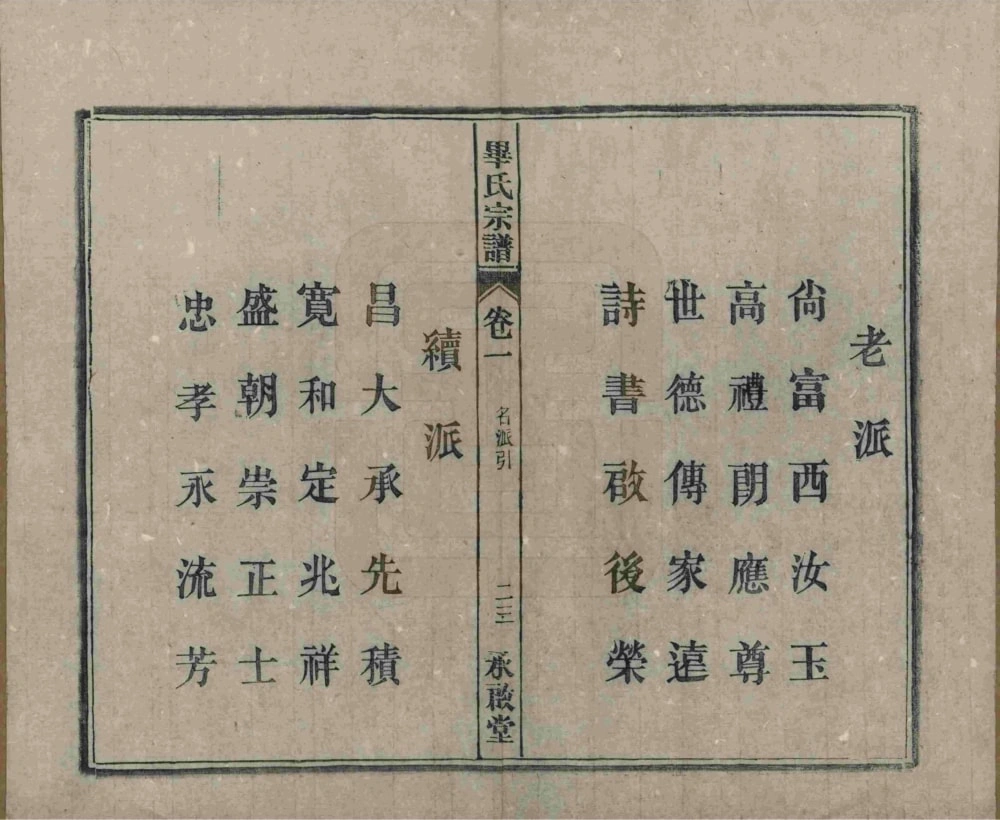 老派
尙富西汝玉
高禮朗應尊
世德傳家遠
詩書啟後榮
畢氏宗譜
卷一
名派引
二三
承啟堂
續派
昌大承先積
寬和定兆祥
盛朝崇正士
忠孝永流芳